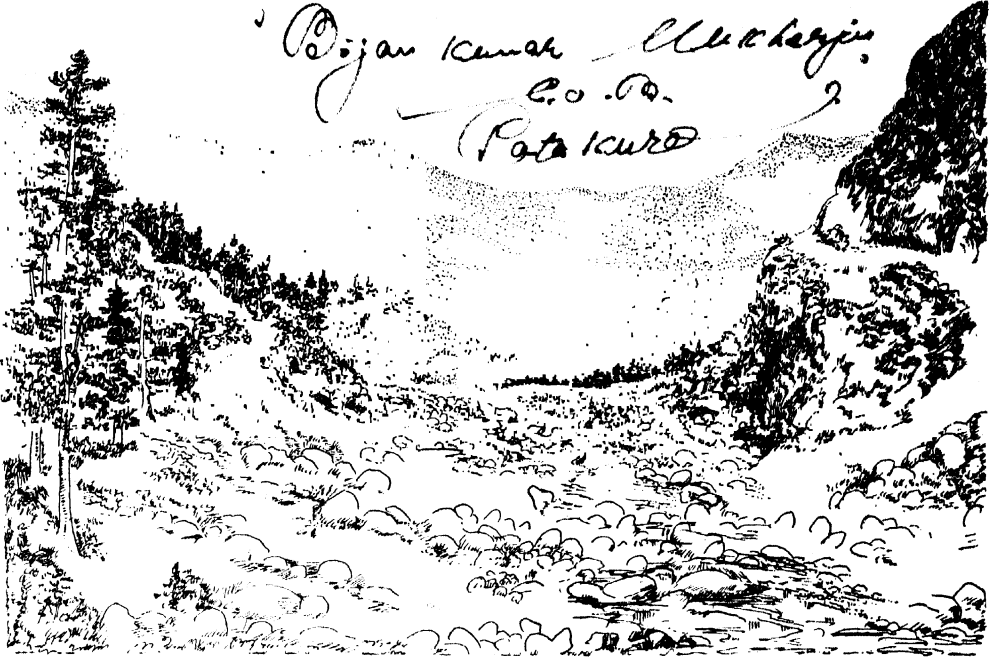 Bijan Kumar Mukherjee
C.O.D.
Patakura